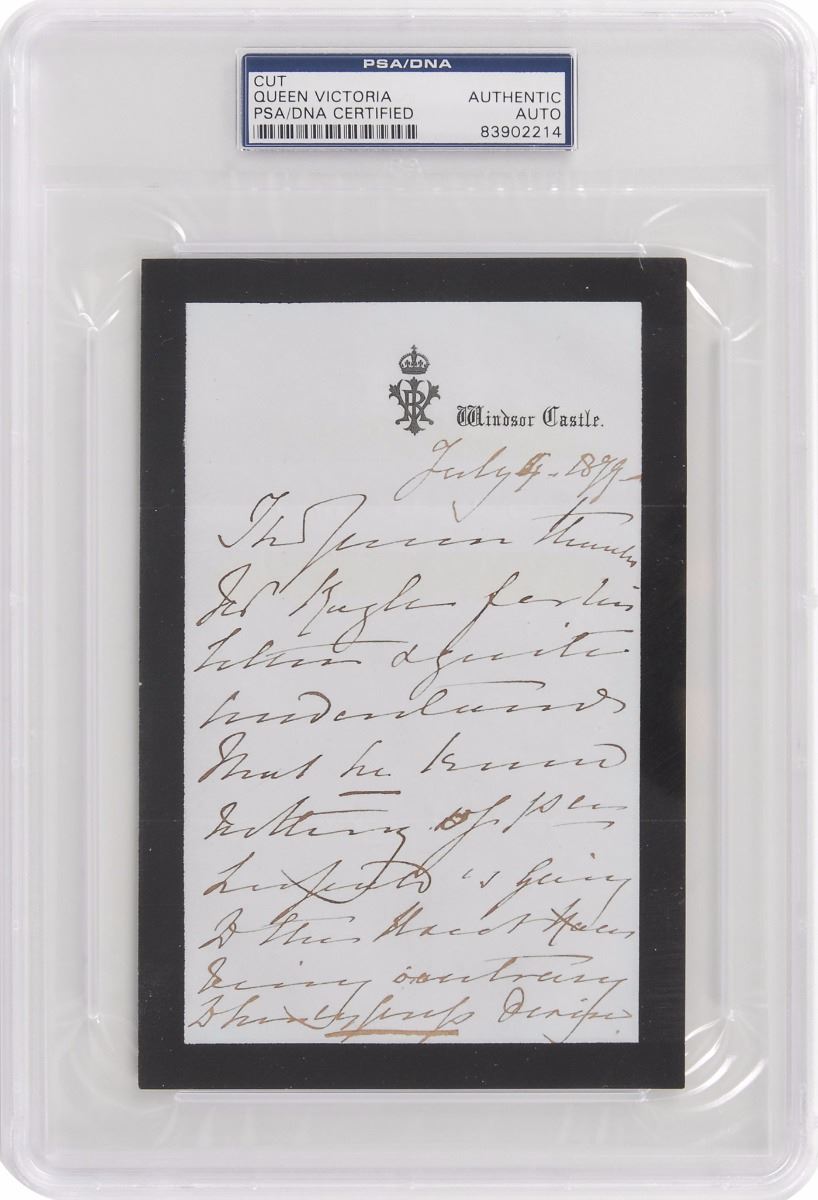 PSA/DNA
CUT
QUEEN VICTORIA AUTHENTIC
PSA/DNA CERTIFIED AUTO
83902214
VRI
Windsor Castle.
July 4. 1879
The Queen thanks
for his
letter & quite
understands
that he knew
nothing of Pce
Leopold's going
to the House
being contrary
to her express desire